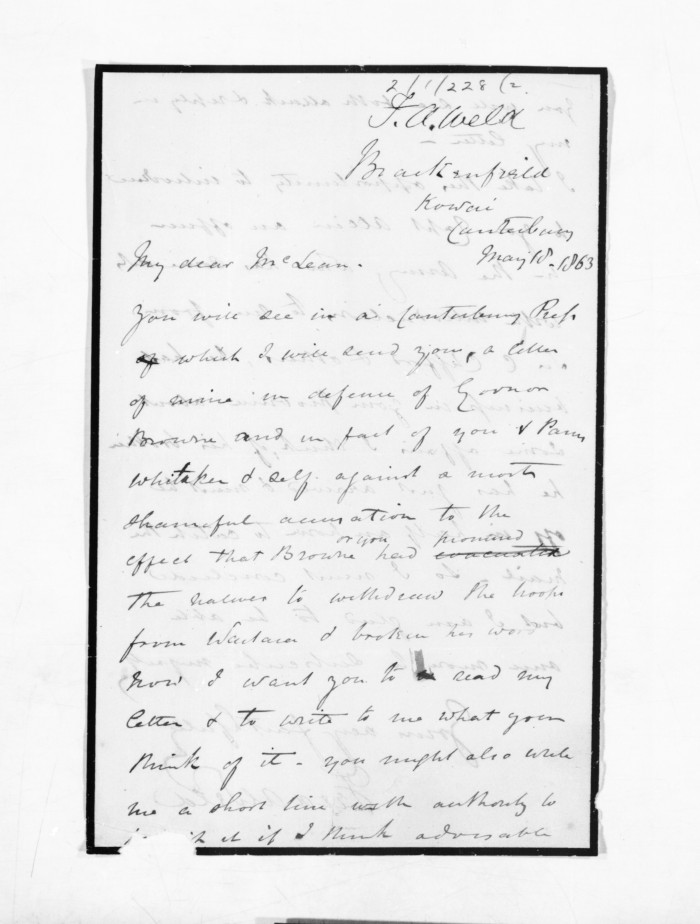 2/1/228/2.
F. A. Weld
Brackenfield
Kowai
Canterbury
May 18. 1863
My dear McLean.
You will see in a Canterbury Press
of which I will send you, a letter
of mine in defence of Govnor
Browne and in fact of you &
Whitaker & self against a most
shameful accusation to the
or you promised
effect that Browne had
the natives to withdraw the troops
from Waitara & broken his word
Now I want you to read my
letter & to write to me what you
think of it - you might also write
me a short line with authority to
it if I think advisable